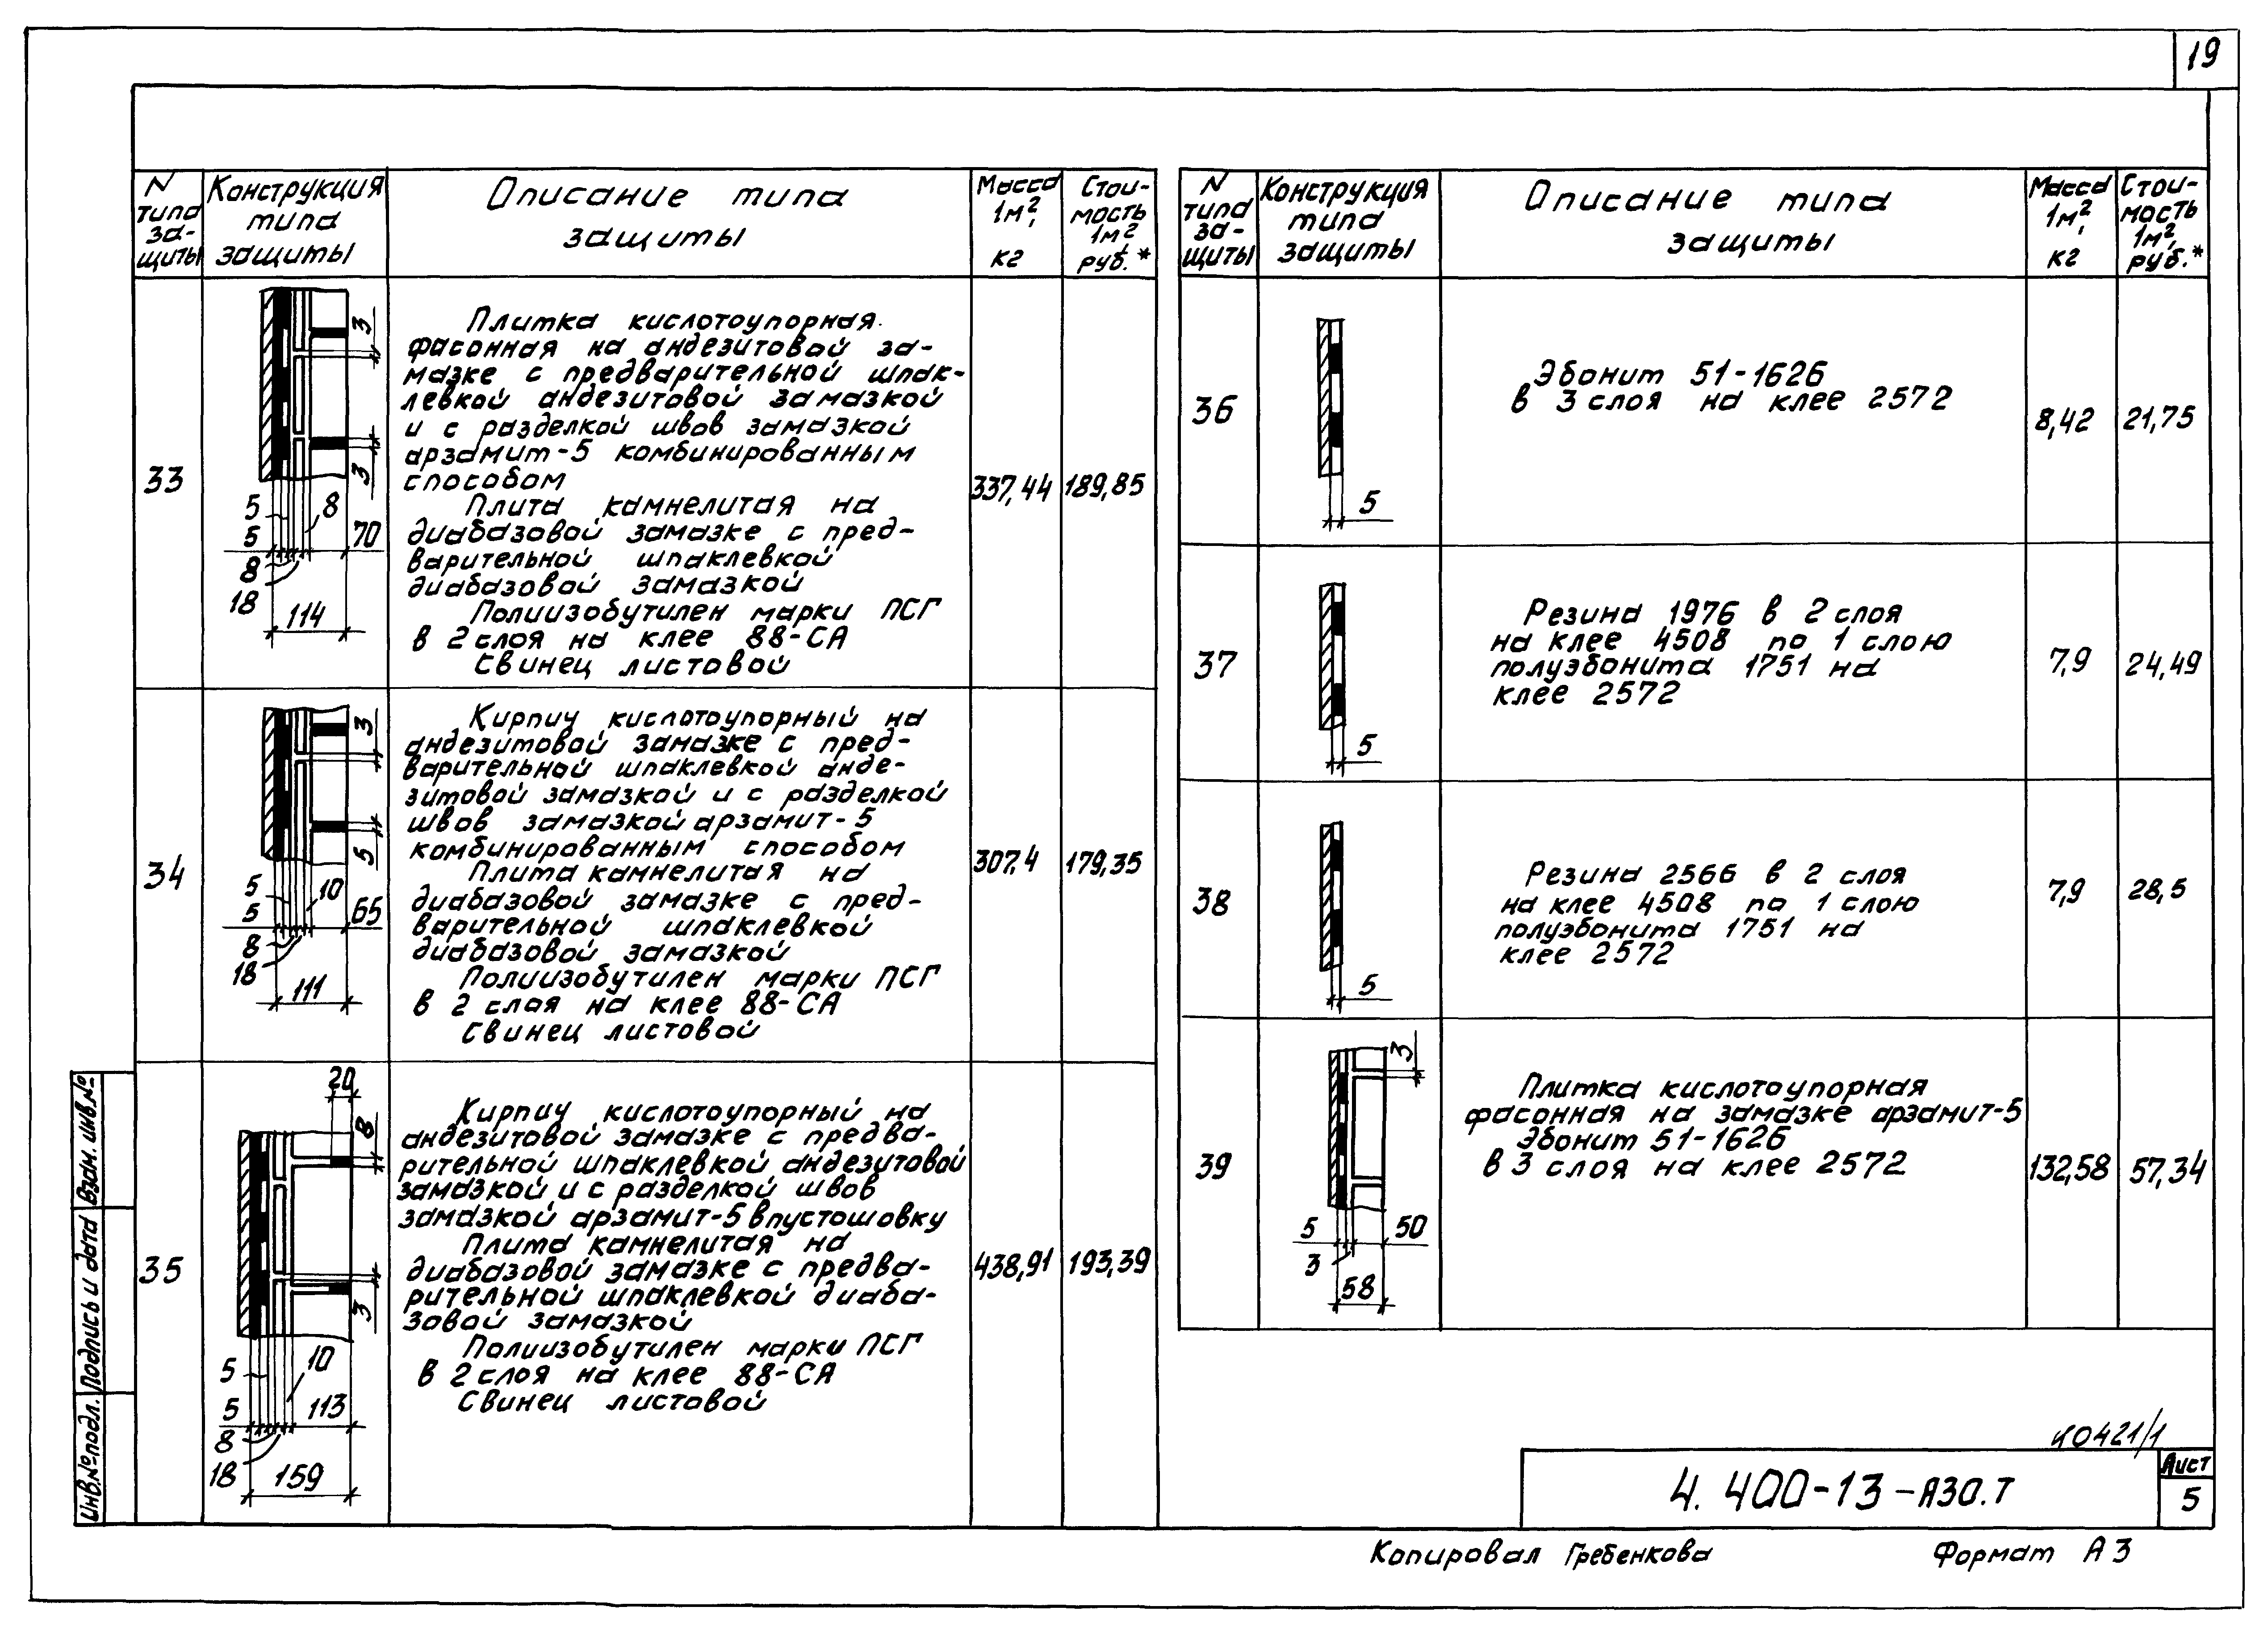 19
N
типа
за-
щиты
Конструкция
типа
защиты
Описание типа
защиты
Масса
1м²,
кг
Стои-
мость
1м²
руб.*
33
3
3
5
8
5
70
8
18
114
Плитка кислотоупорная
фасонная на андезитовой за-
мазке с предварительной шпак-
левкой андезитовой замазкой
и с разделкой швов замазкой
арзамит-5 комбинированным
способом
Плита камнелитая на
диабазовой замазке с пред-
варительной шпаклевкой
диабазовой замазкой
Полиизобутилен марки ПСГ
в 2 слоя на клее 88-СА
Свинец листовой
337,44
189,85
34
3
5
5
10
5
65
8
18
111
Кирпич кислотоупорный на
андезитовой замазке с пред-
варительной шпаклевкой анде-
зитовой замазкой и с разделкой
швов замазкой арзамит-5
комбинированным способом
Плита камнелитая на
диабазовой замазке с пред-
варительной шпаклевкой
диабазовой замазкой
Полиизобутилен марки ПСГ
в 2 слоя на клее 88-СА
Свинец листовой
307,4
179,35
35
20
8
3
5
10
5
113
8
18
159
Кирпич кислотоупорный на
андезитовой замазке с предва-
рительной шпаклевкой андезитовой
замазкой и с разделкой швов
замазкой арзамит-5 впустошовку
Плита камнелитая на
диабазовой замазке с предва-
рительной шпаклевкой диаба-
зовой замазкой
Полиизобутилен марки ПСГ
в 2 слоя на клее 88-СА
Свинец листовой
438,91
193,39
N
типа
за-
щиты
Конструкция
типа
защиты
Описание типа
защиты
Масса
1м²,
кг
Стои-
мость
1м²,
руб.*
36
5
Эбонит 51-1626
в 3 слоя на клее 2572
8,42
21,75
37
5
Резина 1976 в 2 слоя
на клее 4508 по 1 слою
полуэбонита 1751 на
клее 2572
7,9
24,49
38
5
Резина 2566 в 2 слоя
на клее 4508 по 1 слою
полуэбонита 1751 на
клее 2572
7,9
28,5
39
3
5
50
3
58
Плитка кислотоупорная
фасонная на замазке арзамит-5
Эбонит 51-1626
в 3 слоя на клее 2572
132,58
57,34
Взам. инв.№
Подпись и дата
Инв.№ подл.
К0421/1
4.400-13-АЗО.Т
Лист
5
Копировал Гребенкова
Формат А3